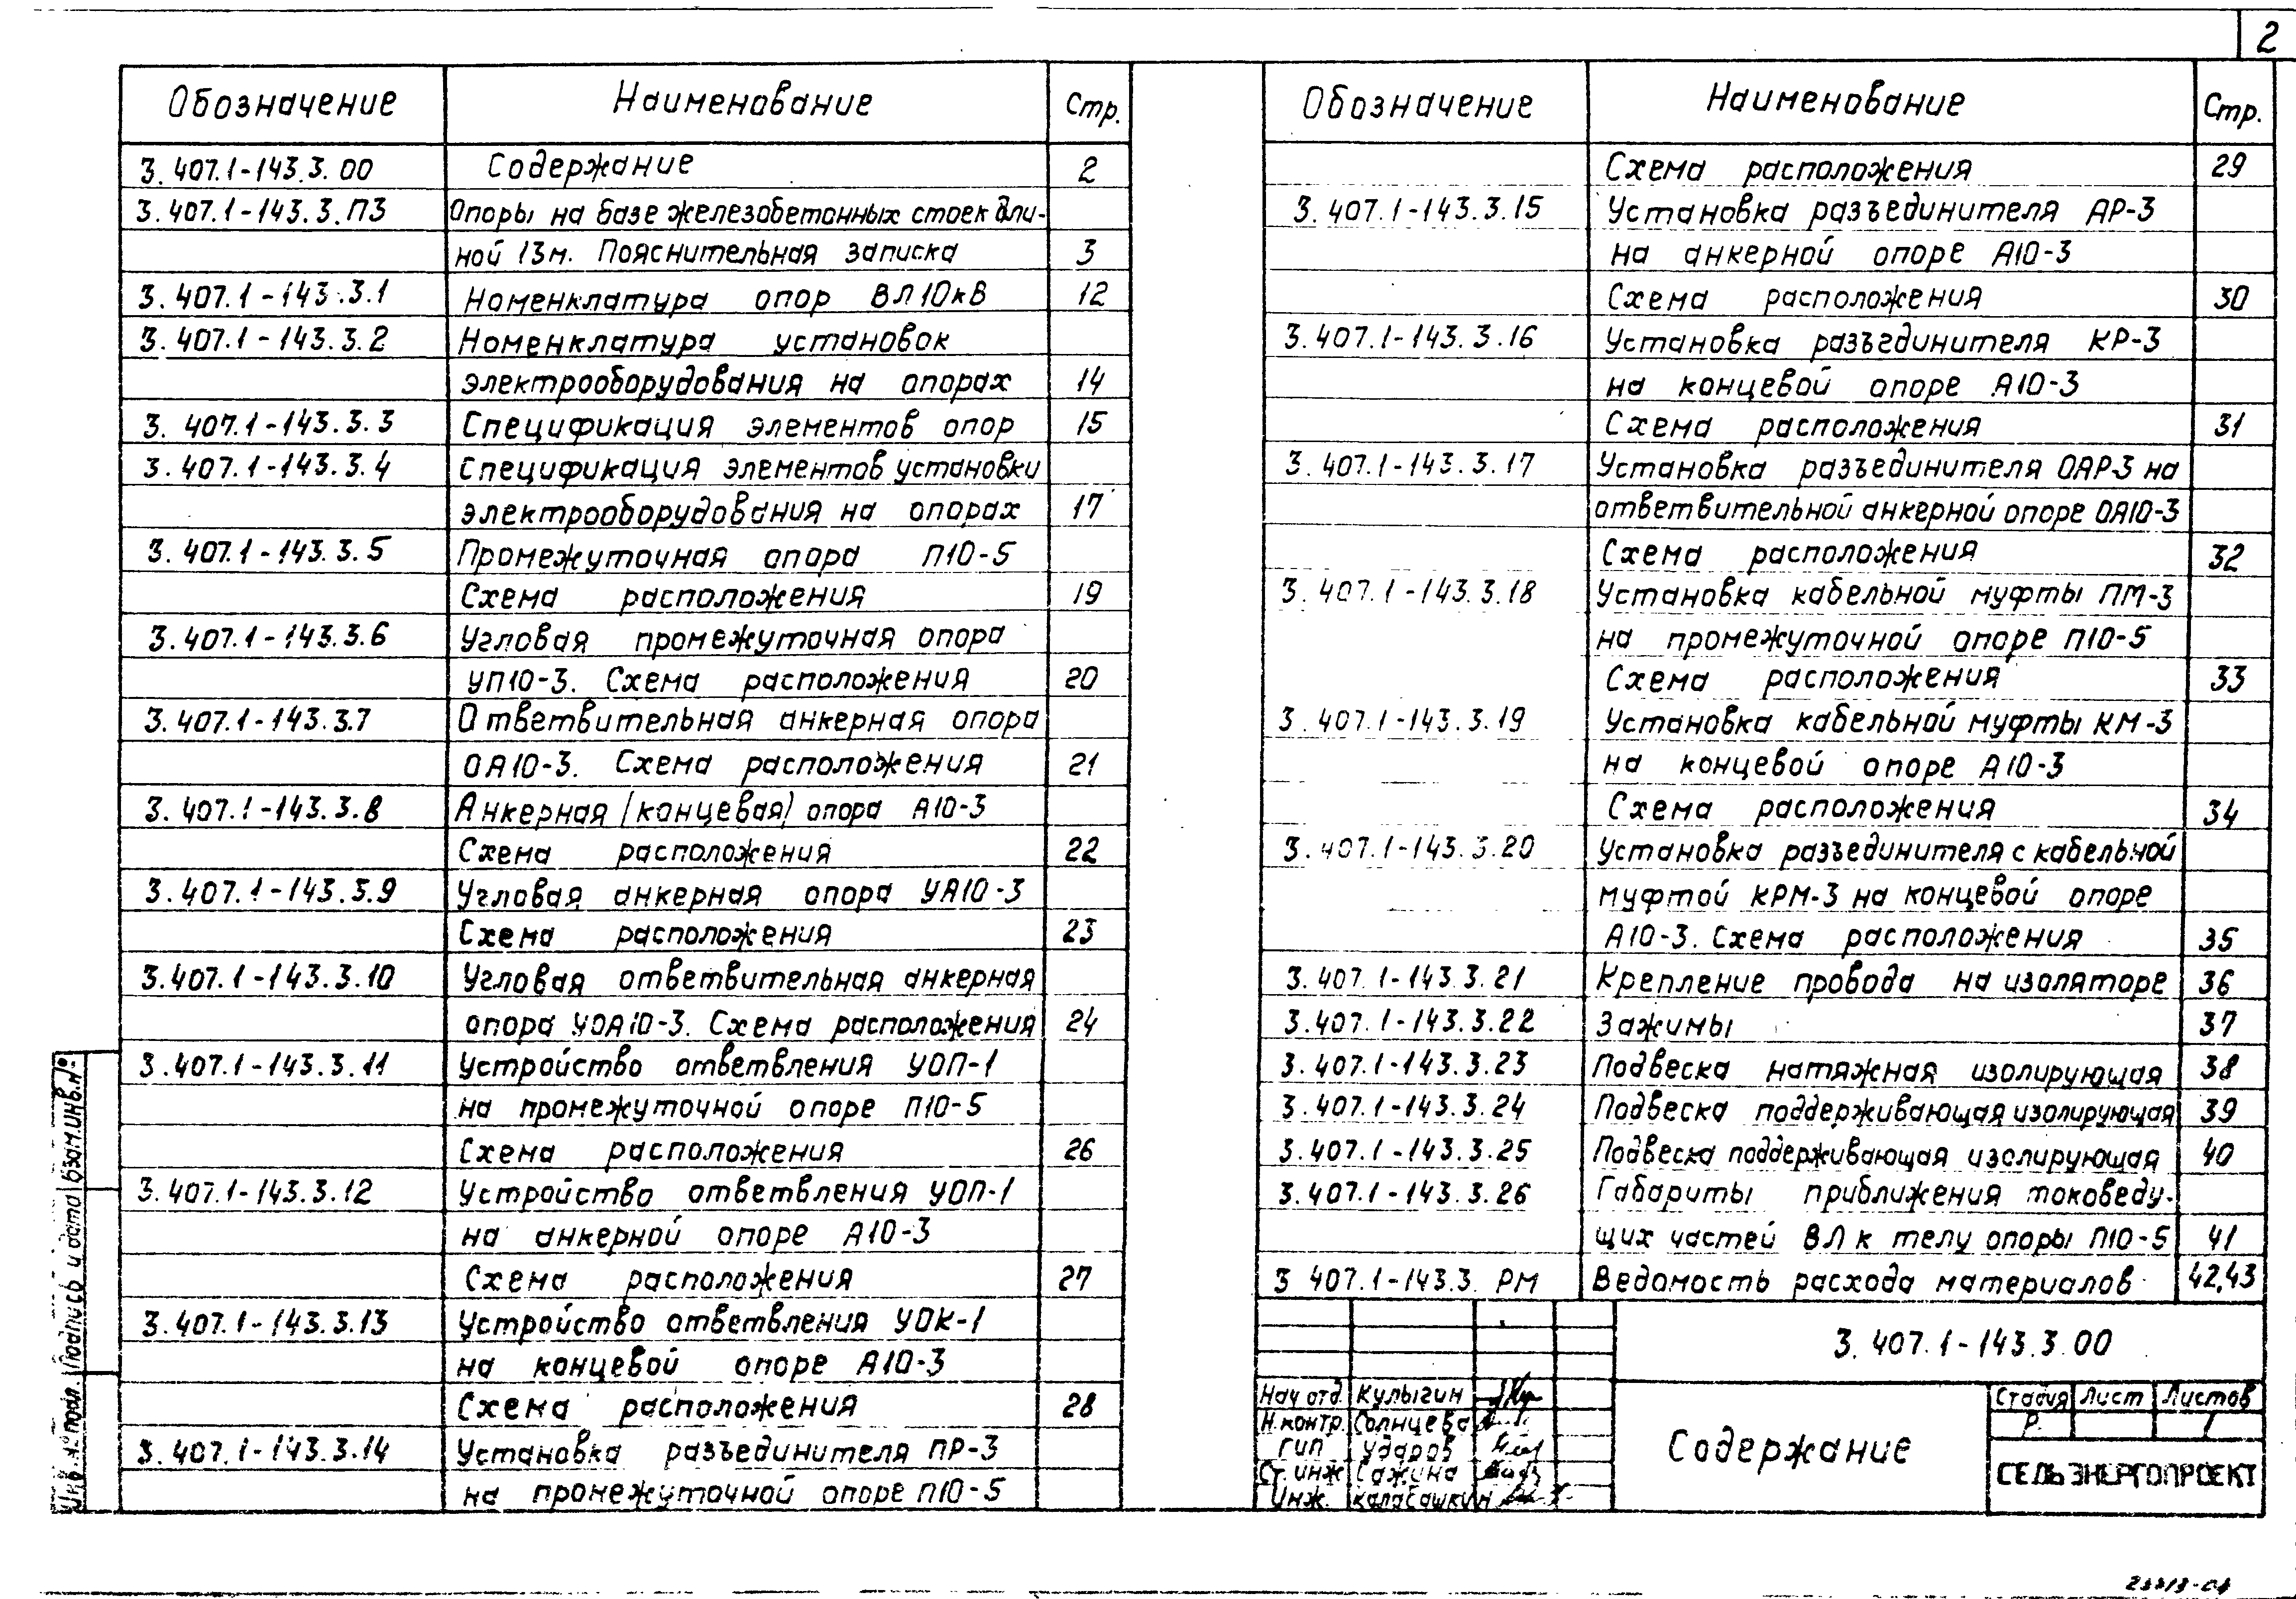 2
Обозначение Наименование Стр.
3.407.1-143.3.00 Содержание 2
3.407.1-143.3.ПЗ Опоры на базе железобетонных стоек дли-
ной 13м. Пояснительная записка 3
3.407.1-143.3.1 Номенклатура опор ВЛ10кВ 12
3.407.1-143.3.2 Номенклатура установок
электрооборудования на опорах 14
3.407.1-143.3.3 Спецификация элементов опор 15
3.407.1-143.3.4 Спецификация элементов установки
электрооборудования на опорах 17
3.407.1-143.3.5 Промежуточная опора П10-5
Схема расположения 19
3.407.1-143.3.6 Угловая промежуточная опора
УП10-3. Схема расположения 20
3.407.1-143.3.7 Ответвительная анкерная опора
ОА10-3. Схема расположения 21
3.407.1-143.3.8 Анкерная (концевая) опора А10-3
Схема расположения 22
3.407.1-143.3.9 Угловая анкерная опора УА10-3
Схема расположения 23
3.407.1-143.3.10 Угловая ответвительная анкерная
опора УОА10-3. Схема расположения 24
3.407.1-143.3.11 Устройство ответвления УОП-1
на промежуточной опоре П10-5
Схема расположения 26
3.407.1-143.3.12 Устройство ответвления УОП-1
на анкерной опоре А10-3
Схема расположения 27
3.407.1-143.3.13 Устройство ответвления УОК-1
на концевой опоре А10-3
Схема расположения 28
3.407.1-143.3.14 Установка разъединителя ПР-3
на промежуточной опоре П10-5
Обозначение Наименование Стр.
Схема расположения 29
3.407.1-143.3.15 Установка разъединителя АР-3
на анкерной опоре А10-3
Схема расположения 30
3.407.1-143.3.16 Установка разъединителя КР-3
на концевой опоре А10-3
Схема расположения 31
3.407.1-143.3.17 Установка разъединителя ОАР-3 на
ответвительной анкерной опоре ОА10-3
Схема расположения 32
3.407.1-143.3.18 Установка кабельной муфты ПМ-3
на промежуточной опоре П10-5
Схема расположения 33
3.407.1-143.3.19 Установка кабельной муфты КМ-3
на концевой опоре А10-3
Схема расположения 34
3.407.1-143.3.20 Установка разъединителя с кабельной
муфтой КРМ-3 на концевой опоре
А10-3. Схема расположения 35
3.407.1-143.3.21 Крепление провода на изоляторе 36
3.407.1-143.3.22 Зажимы 37
3.407.1-143.3.23 Подвеска натяжная изолирующая 38
3.407.1-143.3.24 Подвеска поддерживающая изолирующая 39
3.407.1-143.3.25 Подвеска поддерживающая изолирующая 40
3.407.1-143.3.26 Габариты приближения токоведу-
щих частей ВЛ к телу опоры П10-5 41
3 407.1-143.3. РМ Ведомость расхода материалов 42,43
3.407.1-143.3.00
Нач.отд. Кулыгин
Н.контр. Солнцева
ГИП Ударов
Ст.инж Сажина
Инж. Калабашкин
Содержание
Стадия Лист Листов
Р. 1
СЕЛЬЭНЕРГОПРОЕКТ
Инв.№ подл. Подпись и дата Взам.инв.№